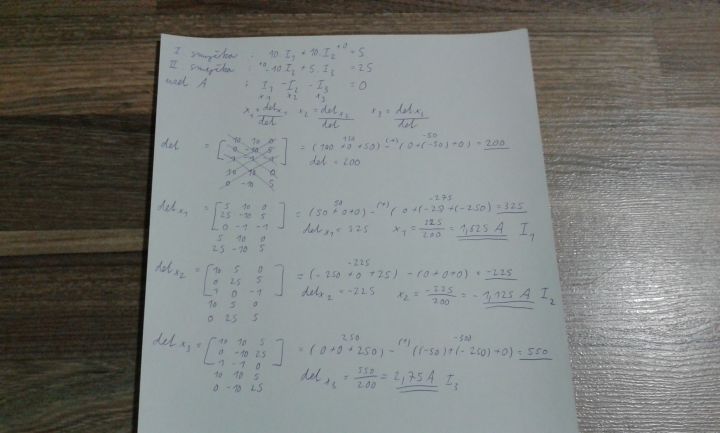 I smyčka : 10·I₁ + 10·I₂ +0 = 5
II smyčka : +0 -10·I₂ + 5·I₃ = 25
uzel A : I₁ - I₂ - I₃ = 0
x₁ x₂ x₃
x₁ = det x₁ / det x₂ = det x₂ / det x₃ = det x₃ / det
det = [ 10 10 0
0 -10 5
1 -1 -1 ]
10 10 0
0 -10 5
= (100 + 0 + 50) - (0 + (-50) + 0) = 200
det = 200
det x₁ = [ 5 10 0
25 -10 5
0 -1 -1 ]
5 10 0
25 -10 5
= (50 + 0 + 0) - (0 + (-25) + (-250) = 325
50 (+) -275
det x₁ = 325 x₁ = 325/200 = 1,625 A I₁
det x₂ = [ 10 5 0
0 25 5
1 0 -1 ]
10 5 0
0 25 5
-225
= (-250 + 0 + 25) - (0 + 0 + 0) = -225
det x₂ = -225 x₂ = -225/200 = -1,125 A I₂
det x₃ = [ 10 10 5
0 -10 25
1 -1 0 ]
10 10 5
0 -10 25
250 (+) -300
= (0 + 0 + 250) - ((-50) + (-250) + 0) = 550
det x₃ = 550/200 = 2,75 A I₃